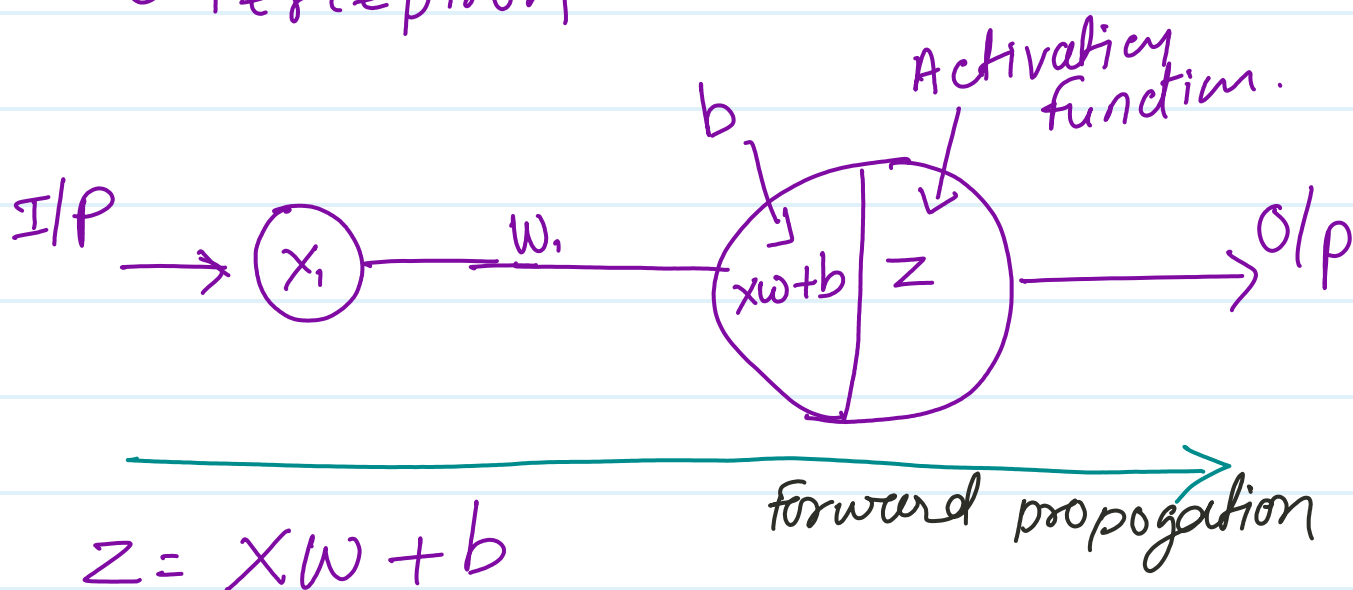 Perceptron
Activation
function.
b
I/P
X₁
W₁
xw+b
Z
O/p
forward propogation
Z = XW + b